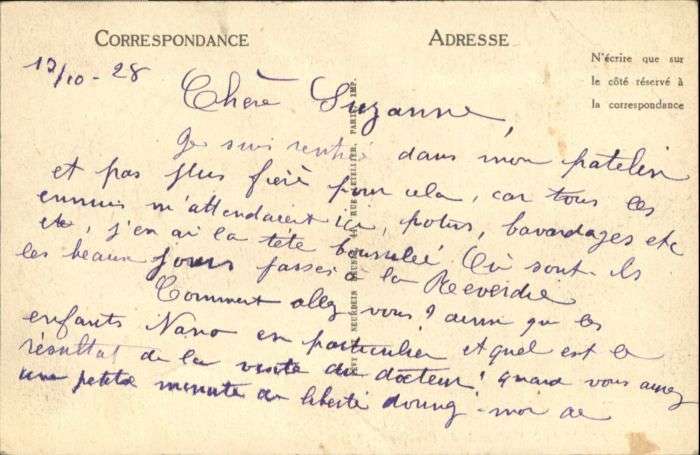 CORRESPONDANCE
ADRESSE
N'écrire que sur
le côté réservé à
la correspondance
12/10 - 28
Chère Suzanne,
Je suis rentrée dans mon patelin
et pas plus fière pour cela, car tous les
ennuis m'attendaient ici, potins, bavardages etc
etc, j'en ai la tête Où sont ils
les beaux jours passés à la Reverdie
Comment allez vous ? ainsi que les
enfants Nano en particulier et quel est le
résultat de la visite du docteur ! quand vous aurez
une petite minute de liberté donnez-moi de
LEVY NEURDEIN RÉUNIS, 44, RUE LETELLIER, PARIS. IMP.